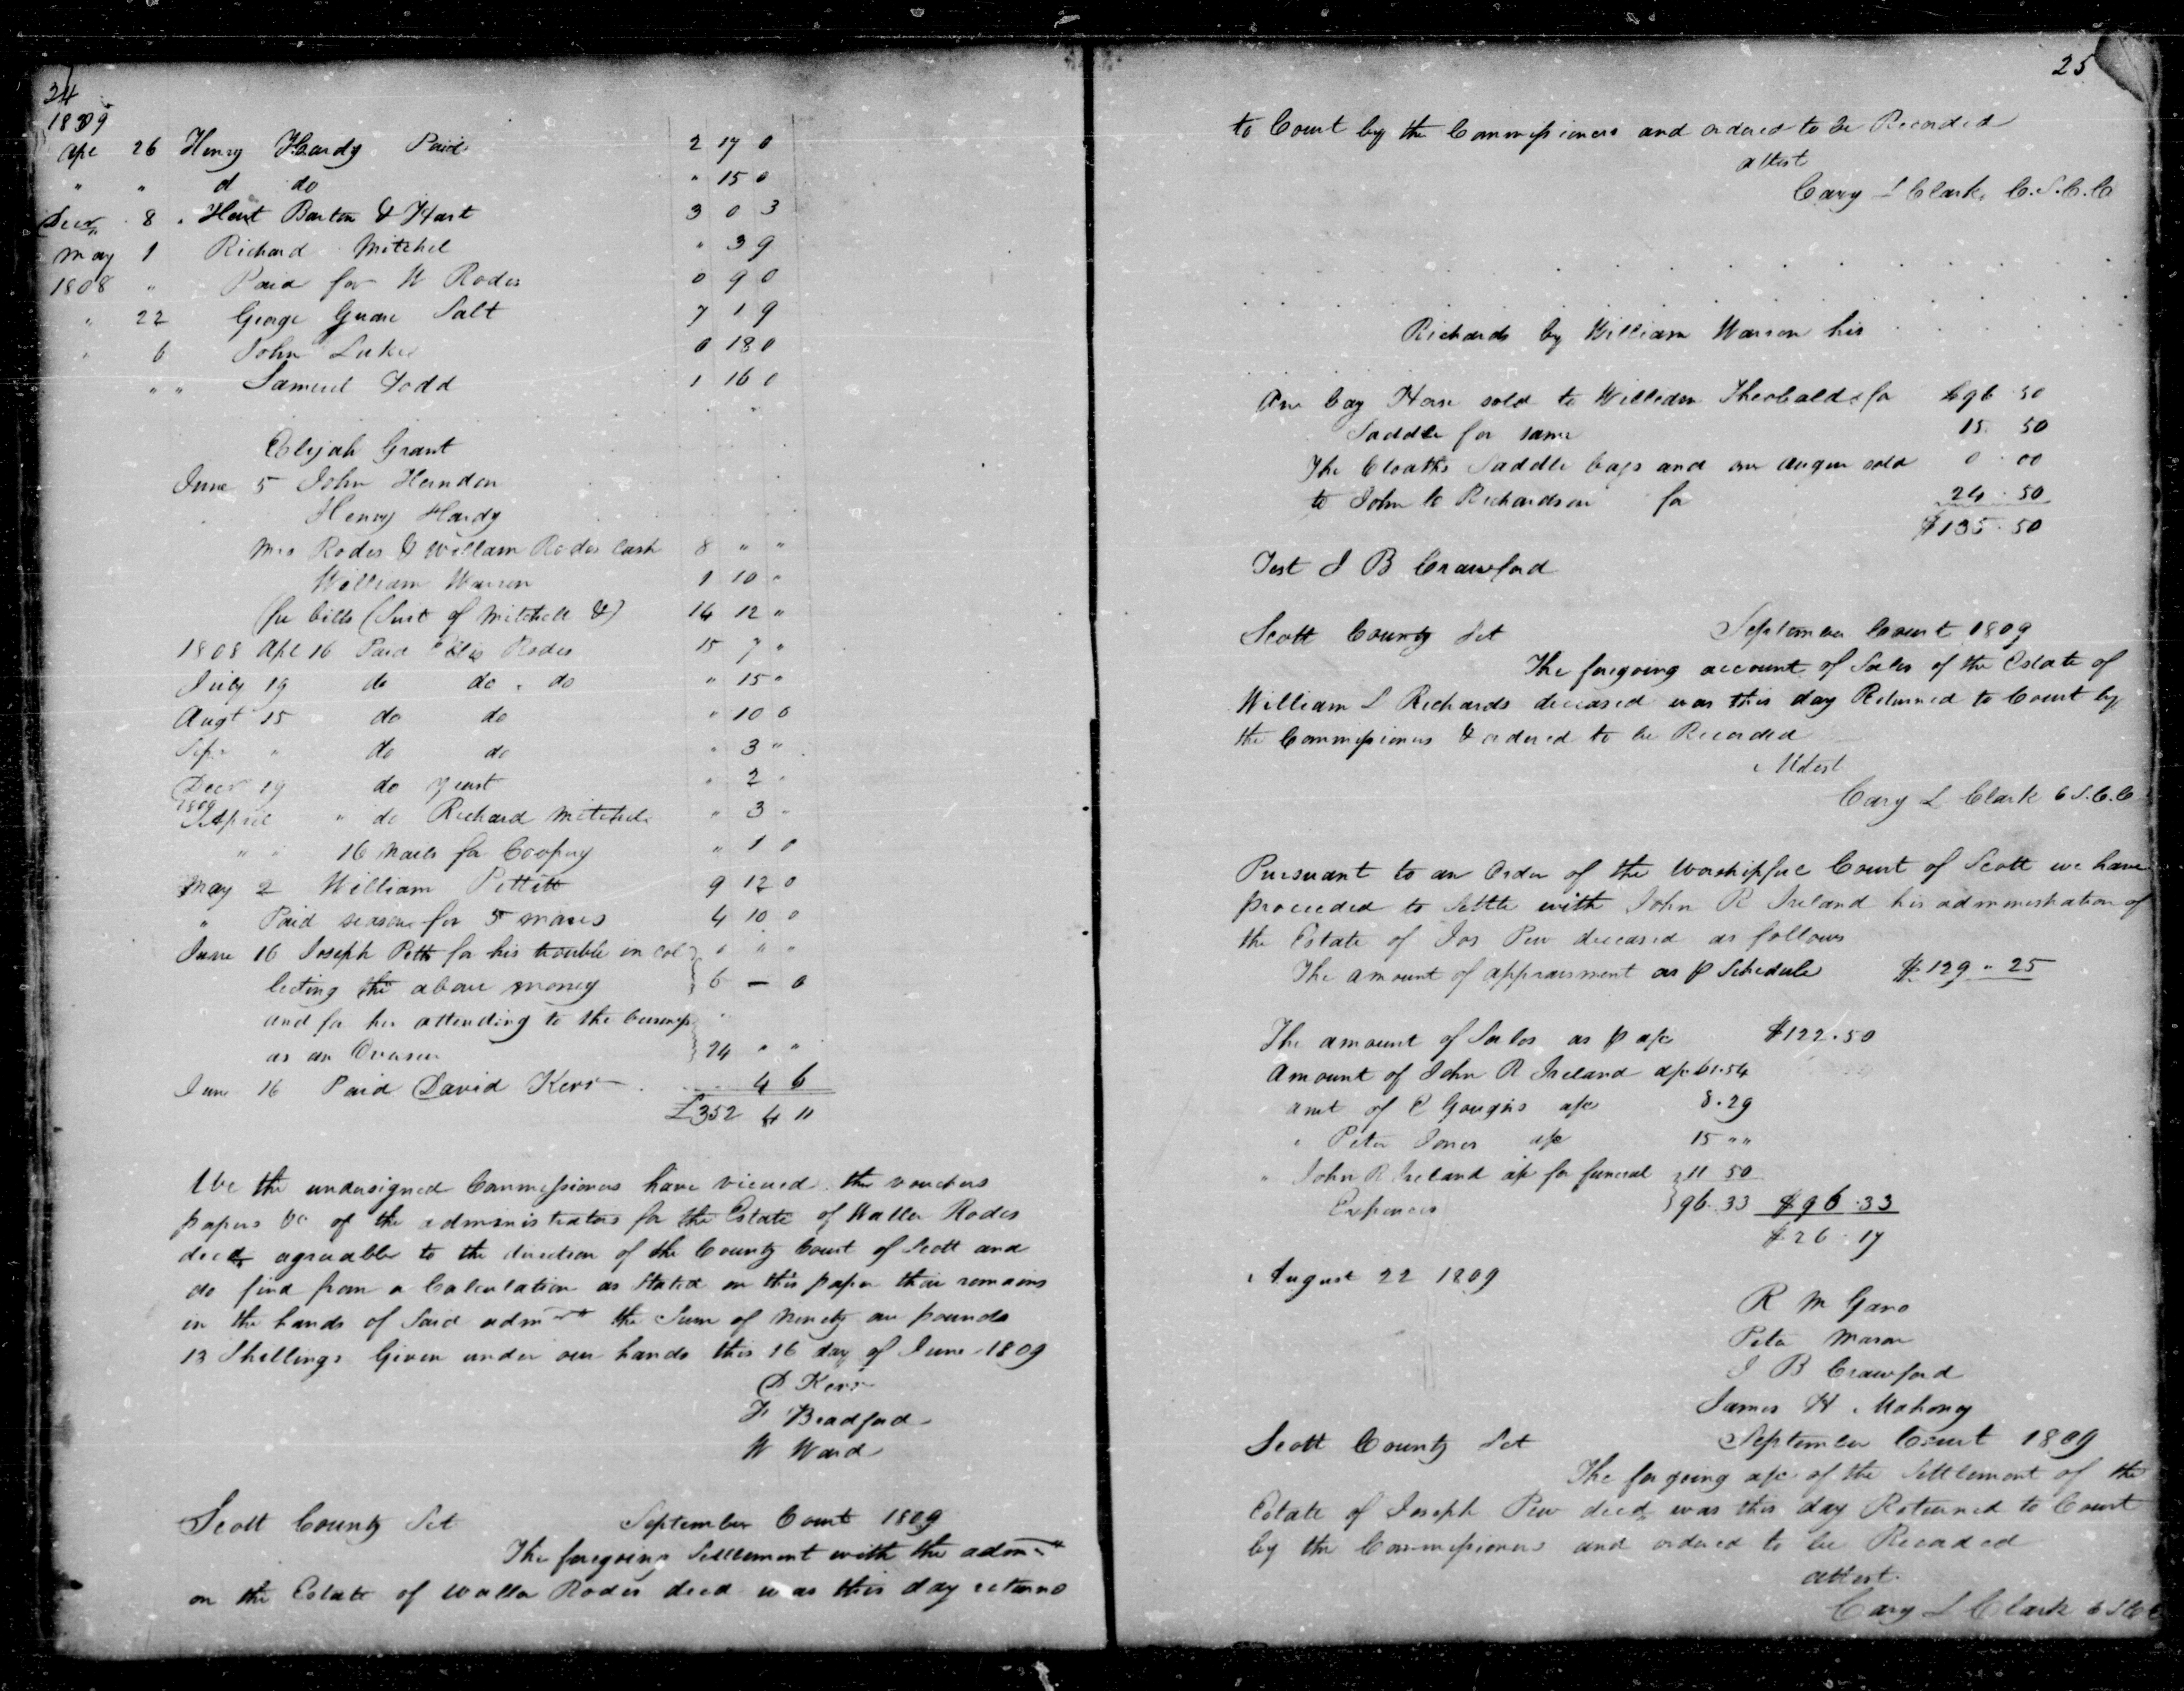 24
1809
Apl 26 Henry Hardy Paid 2 17 0
" " d do " 15 0
Decr 8 Hart Barton & Hart 3 0 3
May 1 Richard Mitchel " 3 9
1808 " Paid for W Rodes 0 9 0
" 22 George Salt 7 1 9
" 6 John 0 18 0
" " Samuel Todd 1 16 0
Elijah Grant
June 5 John Herndon
Henry Hardy
Mrs Rodes & William Rodes Cash 8 " "
William Warren 1 10 "
fee bills (Suit of Mitchell &) 14 12 "
1808 Apl 16 Paid Rodes 15 7 "
July 19 do do . do " 15 "
Augt 15 do do " 10 0
Sepr " do do " 3 "
Decr 19 do yeast " 2 "
1809
April " do Richard Mitchel " 3 "
" " 16 Nails for " 1 0
May 2 William Pettitt 9 12 0
" Paid season for 5 mares 4 10 0
June 16 Joseph for his trouble in col " " "
lecting the above money 6 — 0
and for his attending to the business
as an Overseer 24 " "
June 16 Paid David Kerr 4 6
£352 4 11
We the undersigned Commissioners have viewed the vouchers
papers &c of the administrators for the Estate of Waller Rodes
decd agreeable to the direction of the County Court of Scott and
do find from a Calculation as Stated on this paper their remains
in the hands of Said admrs the Sum of Ninety one pounds
13 Shillings Given under our hands this 16 day of June 1809
D Kerr
F Bradford
W Ward
Scott County Sct September Court 1809
The foregoing Settlement with the admrs
on the Estate of Waller Rodes decd was this day returned
25
to Court by the Commissioners and ordered to be Recorded
attest
Cary L Clark, C.S.C.C
Richards by William Warren his
One bay Horse sold to William Theobalds for $96 50
Saddle for same 15 50
The Cloaths Saddle bags and one auger sold 0 00
to John C Richardson for 24 . 50
$135 . 50
Test J B Crawford
Scott County Sct September Court 1809
The foregoing account of Sales of the Estate of
William L Richards deceased was this day Returned to Court by
the Commissioners & ordered to be Recorded
Attest
Cary L Clark C S.C.C
Pursuant to an Order of the Worshipful Court of Scott we have
proceeded to Settle with John R Ireland his administration of
the Estate of Jos Pew deceased as follows
The amount of appraisment as p Schedule $129 " 25
The amount of Sales as p a/c $122.50
Amount of John R Ireland a/c 61.54
amt of C Goughs a/c 8.29
" Peter Jones a/c 15 " "
" John R Ireland a/c for funeral 11 50
Expences 96.33 $96.33
$26.17
August 22 1809
R M Gano
Peter Mason
J B Crawford
James H Mahony
Scott County Sct September Court 1809
The forgoing a/c of the Settlement of the
Estate of Joseph Pew decd was this day Returned to Court
by the Commissioners and ordered to be Recorded
attest
Cary L Clark C S C C